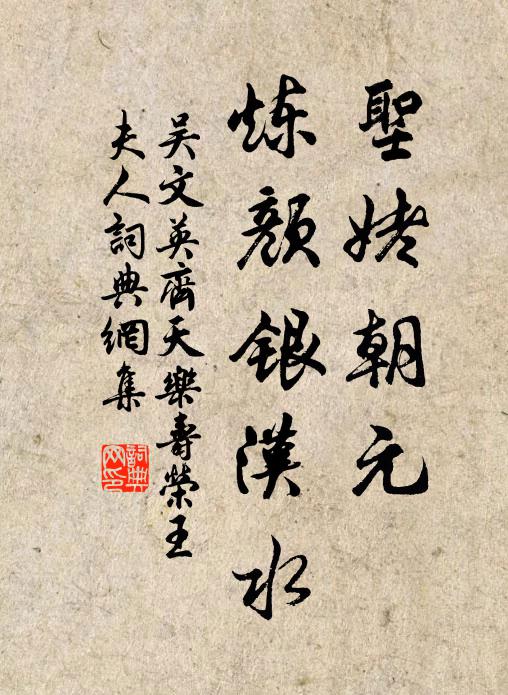 聖姥朝元
炼顔銀漢水
吴文英齊天樂壽榮王
夫人詞典網集
詞典网印